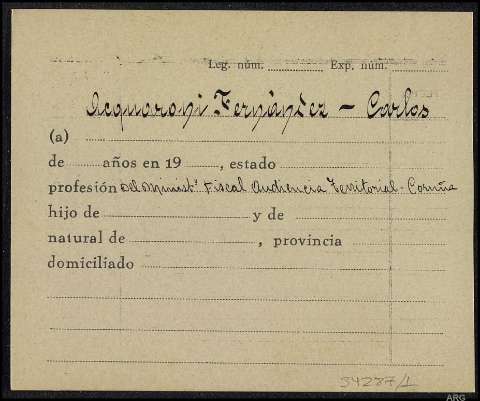 Leg. núm. Exp. núm.
Acquaroni Fernández - Carlos
(a)
de años en 19 , estado
profesión del Minist.º Fiscal Audiencia Territorial - Coruña
hijo de y de
natural de , provincia
domiciliado
34287/1
ARG